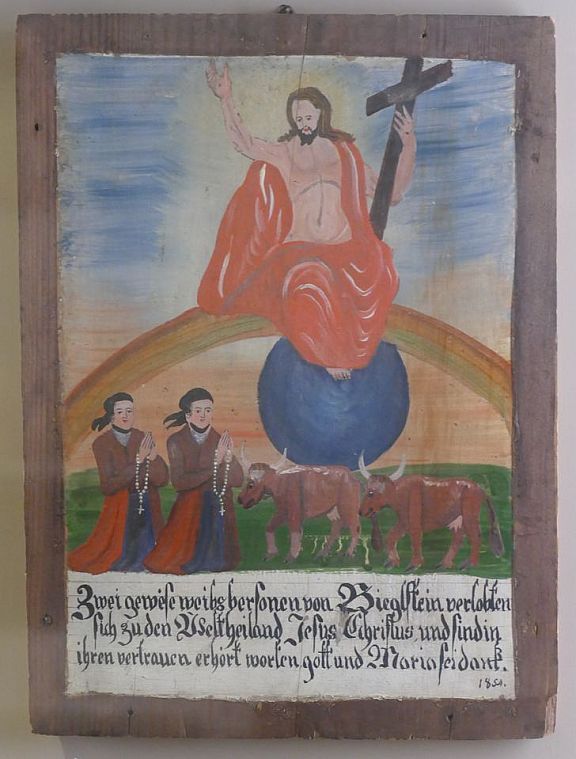 Zwei gewese weibs bersonen von Bieglstein verlobten
sich zu den Weltheiland Jesus Cihristus und sind in
ihren vertrauen erhört worten gott und Maria sei dank.